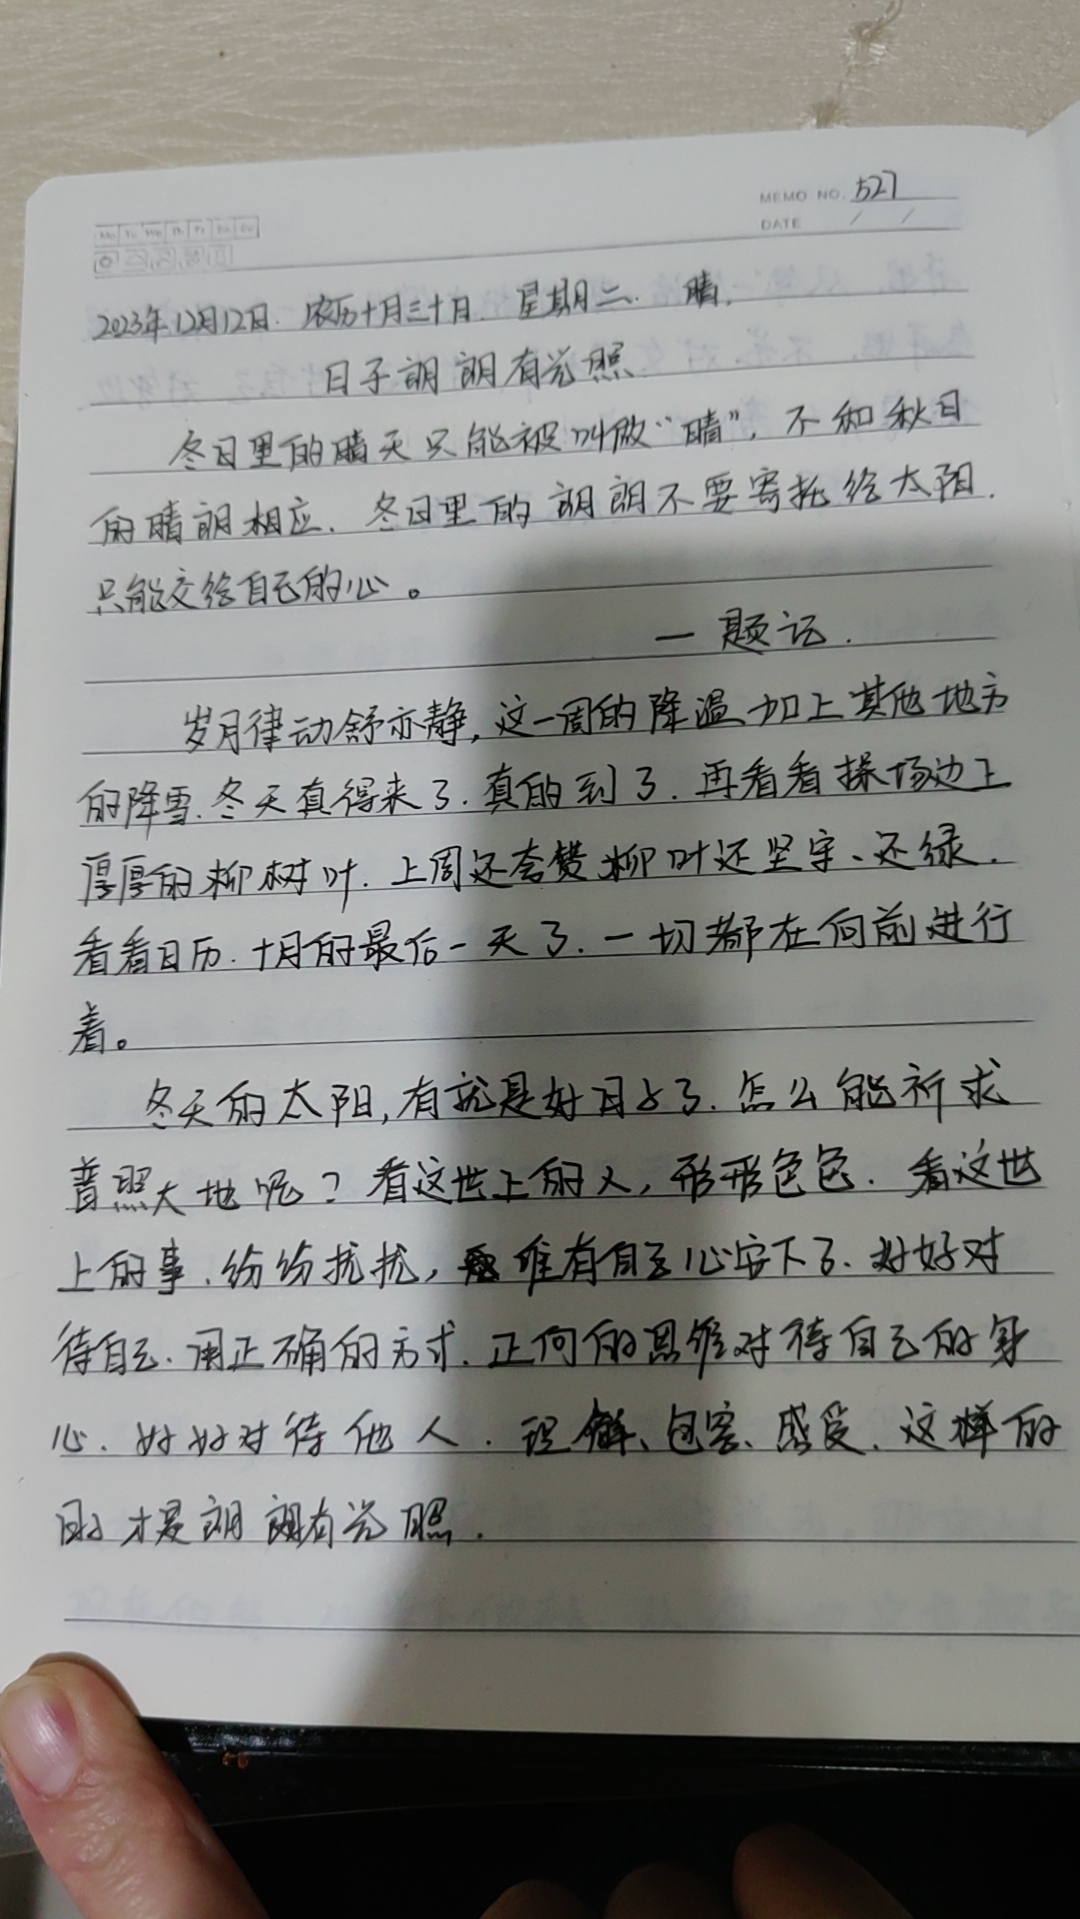 MEMO NO. 527
DATE / /
Mo Tu We Th Fr Sa Su
2023年12月12日. 农历十月三十日. 星期二. 晴.
日子朗朗有光照
冬日里的晴天只能被叫做“晴”, 不和秋日
的晴朗相应、冬日里的朗朗不要寄托给太阳.
只能交给自己的心。
一题记.
岁月律动舒亦静, 这一周的降温加上其他地方
的降雪.冬天真得来了.真的到了.再看看操场边上
厚厚的柳树叶.上周还夸赞柳叶还坚守、还绿.
看看日历.十月的最后一天了.一切都在向前进行
着。
冬天的太阳,有就是好日子了.怎么能祈求
普照大地呢?看这世上的人,形形色色.看这世
上的事.纷纷扰扰,唯有自己心安下了.好好对
待自己.用正确的方式.正向的思维对待自己的身
心.好好对待他人.理解、包容、感受.这样的
日子才是朗朗有光照.